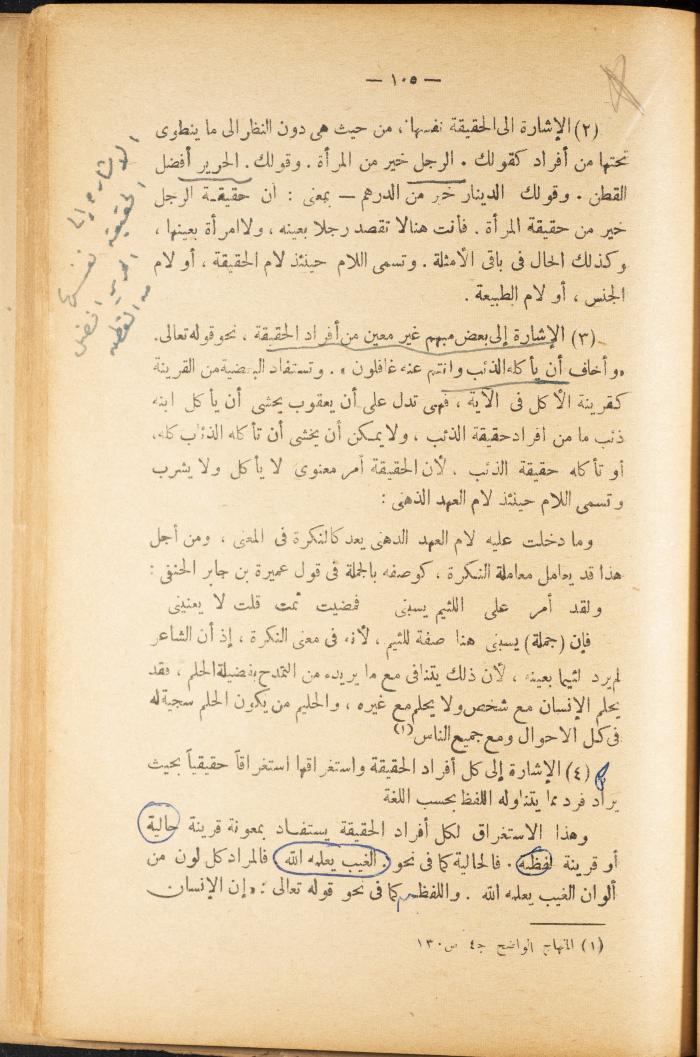 — ١٠٥ —
(٢) الإشارة الى الحقيقة نفسها، من حيث هى دون النظر الى ما ينطوى
تحتها من أفراد كقولك . الرجل خير من المرأة . وقولك . الحرير أفضل
القطن . وقولك الدينار خير من الدرهم — بمعنى : ان حقيقة الرجل
خير من حقيقة المرأة . فأنت هنا لا تقصد رجلا بعينه ، ولا امرأة بعينها ،
وكذلك الحال فى باقى الأمثلة . وتسمى اللام حينئذ لام الحقيقة ، أو لام
الجنس ، أو لام الطبيعة .
(٣) الإشارة إلى بعض مبهم غير معين من أفراد الحقيقة ، نحو قوله تعالى.
«وأخاف أن يأكله الذئب وانتم عنه غافلون» . وتستفاد البعضية من القرينة
كقرينة الأكل فى الآية ، فهى تدل على أن يعقوب يخشى أن يأكل ابنه
ذئب ما من افراد حقيقة الذئب ، ولا يمكن أن يخشى أن تأكله الذئاب كله،
أو تأكله حقيقة الذئب ، لأن الحقيقة أمر معنوى لا يأكل ولا يشرب
وتسمى اللام حينئذ لام العهد الذهنى :
وما دخلت عليه لام العهد الذهنى يعد كالنكرة فى المعنى ، ومن أجل
هذا قد يعامل معاملة النكرة ، كوصفه بالجملة فى قول عميرة بن جابر الحنفى :
ولقد أمر على اللئيم يسبنى فمضيت ثمت قلت لا يعنينى
فإن (جملة) يسبنى هنا صفة للئيم ، لأنه فى معنى النكرة ، إذ أن الشاعر
لم يرد لئيما بعينه ، لأن ذلك يتنافى مع ما يريده من التمدح بفضيلة الحلم ، فقد
يحلم الإنسان مع شخص ولا يحلم مع غيره ، والحليم من يكون الحلم سجية له
فى كل الاحوال ومع جميع الناس (١)
(٤) الإشارة إلى كل أفراد الحقيقة واستغراقها استغراقاً حقيقياً بحيث
يراد فرد مما يتناوله اللفظ بحسب اللغة
وهذا الاستغراق لكل أفراد الحقيقة يستفاد بمعونة قرينة حالية
أو قرينة لفظية . فالحالية كما فى نحو . الغيب يعلمه الله فالمراد كل لون من
ألوان الغيب يعلمه الله . واللفظية كما فى نحو قوله تعالى : «إن الإنسان
(١) المنهاج الواضح ج٤ ص ١٣٠
الاشارة إلى
الحقيقة نفسها
الحرير افضل
من القطن